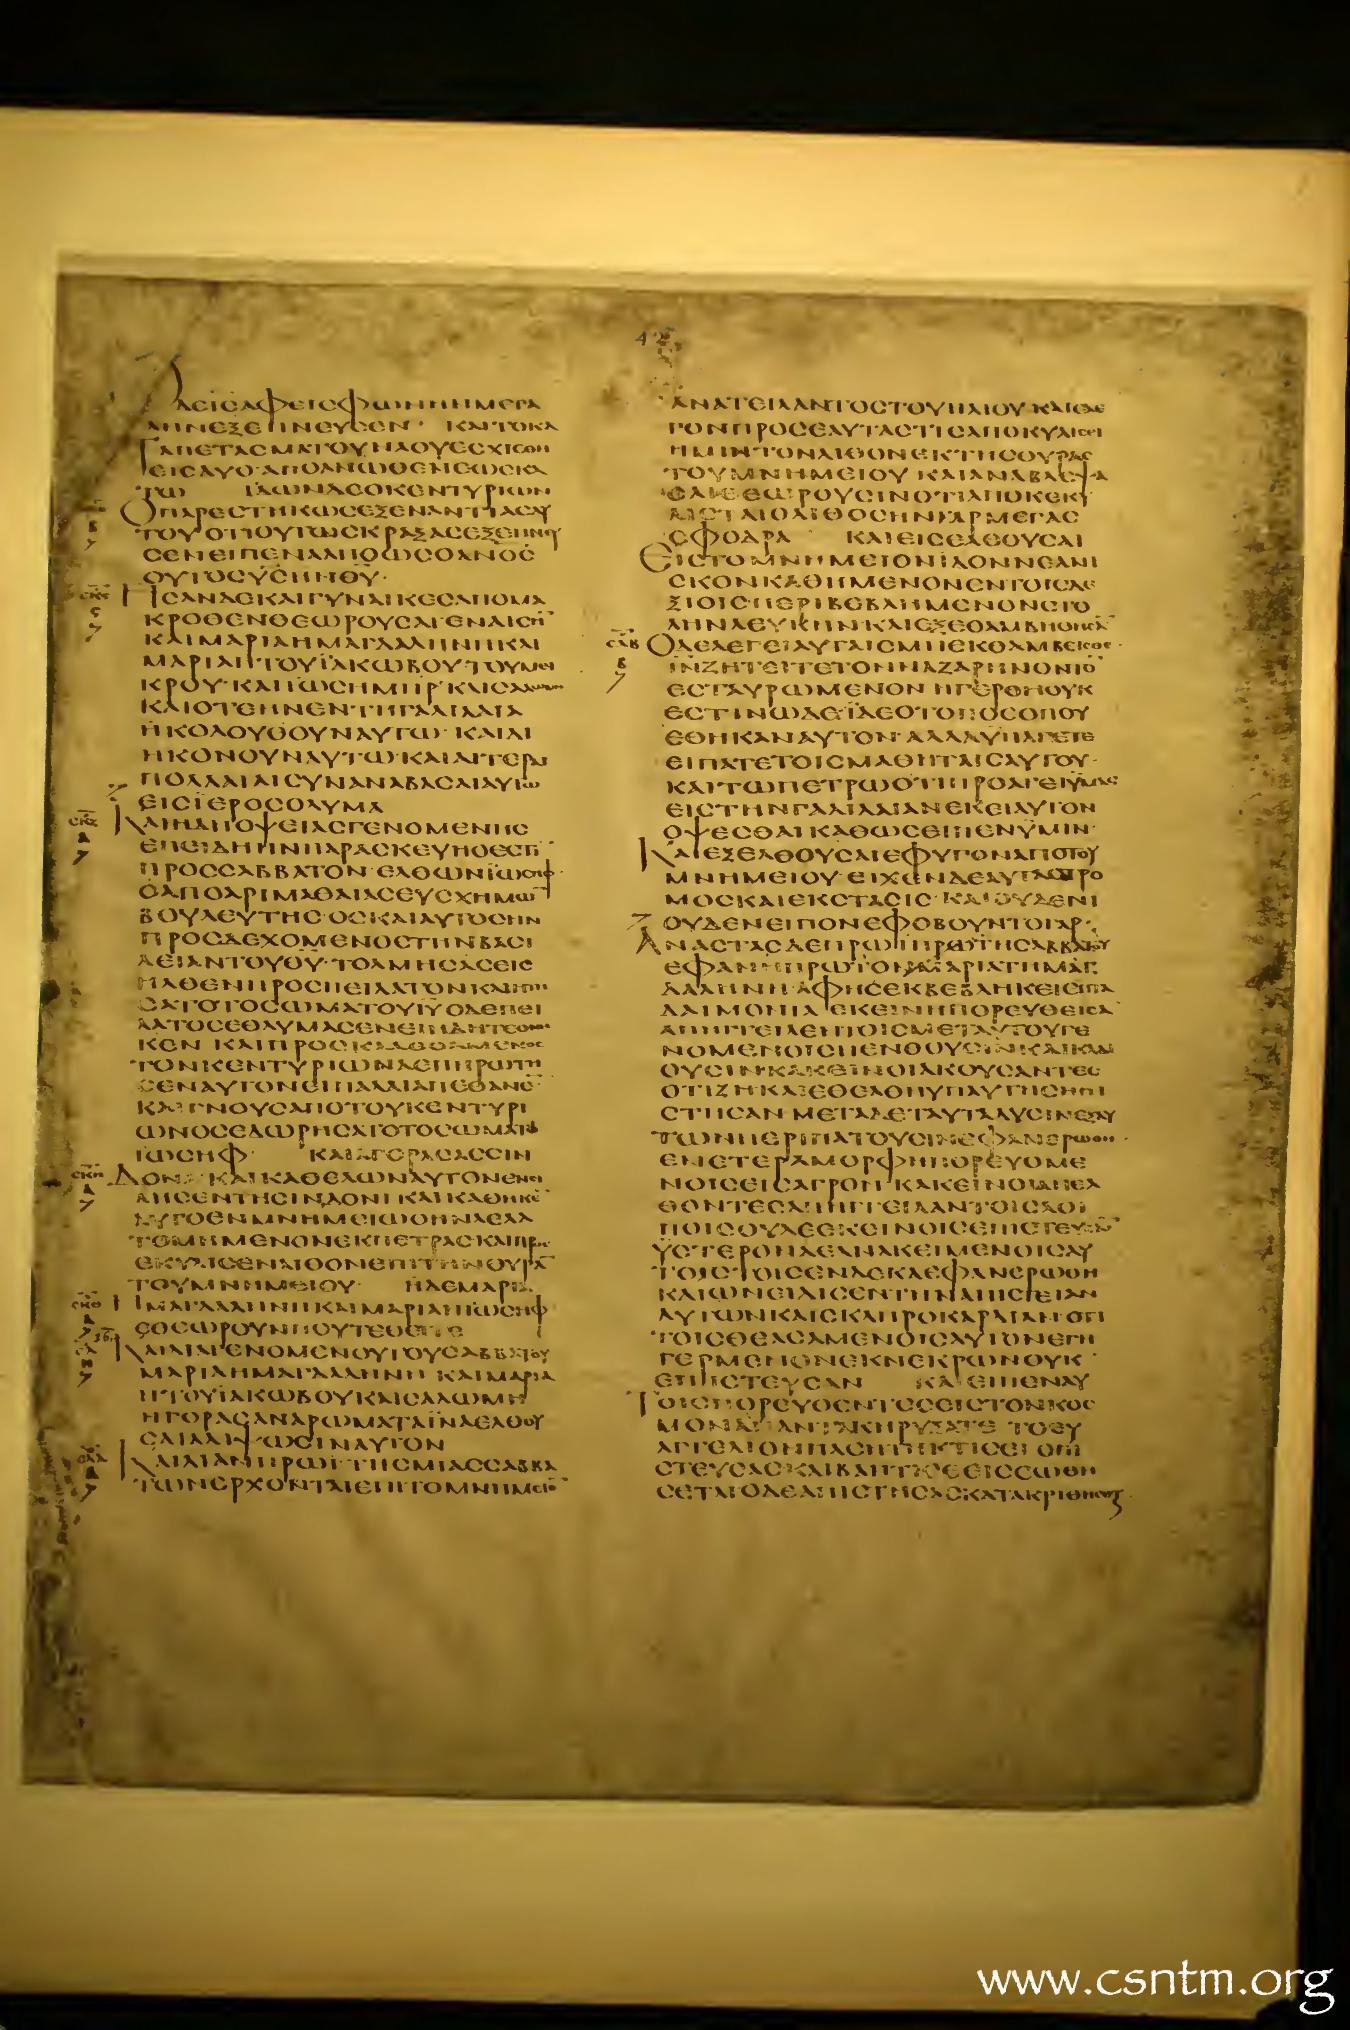 ΔΕΙΣΑΦΕΙΣΦΩΝΗΝΜΕΓΑ
ΛΗΝΕΞΕΠΝΕΥϹΕΝ· ΚΑΙΤΟΚΑ
ΤΑΠΕΤΑϹΜΑΤΟΥΝΑΟΥΕϹΧΙϹΘΗ
ΕΙϹΔΥΟ·ΑΠΟΑΝΩΘΕΝΕΩϹΚΑ
ΤΩ ΙΔΩΝΔΕΟΚΕΝΤΥΡΙΩΝ
ΟΠΑΡΕϹΤΗΚΩϹΕΞΕΝΑΝΤΙΑϹΑΥ
ΤΟΥΟΤΙΟΥΤΩϹΚΡΑΞΑϹΕΞΕΠΝΕΥ
ϹΕΝΕΙΠΕΝΑΛΗΘΩϹΟΑΝΟϹ
ΟΥΤΟϹΥϹΗΝΘΥ·
ΗϹΑΝΔΕΚΑΙΓΥΝΑΙΚΕϹΑΠΟΜΑ
ΚΡΟΘΕΝΘΕΩΡΟΥϹΑΙ·ΕΝΑΙϹΗ
ΚΑΙΜΑΡΙΑΗΜΑΓΔΑΛΗΝΗΚΑΙ
ΜΑΡΙΑΗΤΟΥΙΑΚΩΒΟΥ·ΤΟΥΜΙ
ΚΡΟΥ·ΚΑΙΙΩϹΗΜΗΡ·ΚΑΙϹΑΛΩΜΗ
ΚΑΙΟΤΕΗΝΕΝΤΗΓΑΛΙΛΑΙΑ
ΗΚΟΛΟΥΘΟΥΝΑΥΤΩ· ΚΑΙΔΙ
ΗΚΟΝΟΥΝΑΥΤΩ·ΚΑΙΑΛΛΑΙ
ΠΟΛΛΑΙΑΙϹΥΝΑΝΑΒΑϹΑΙΑΥΤΩ
ΕΙϹΙΕΡΟϹΟΛΥΜΑ
ΚΑΙΗΔΗΟΨΕΙΑϹΓΕΝΟΜΕΝΗϹ
ΕΠΕΙΔΗΗΝΠΑΡΑϹΚΕΥΗΟΕϹΤΙ
ΠΡΟϹϹΑΒΒΑΤΟΝ·ΕΛΘΩΝΙΩϹΗΦ·
ΟΑΠΟΑΡΙΜΑΘΑΙΑϹΕΥϹΧΗΜΩ
ΒΟΥΛΕΥΤΗϹ·ΟϹΚΑΙΑΥΤΟϹΗΝ
ΠΡΟϹΔΕΧΟΜΕΝΟϹΤΗΝΒΑϹΙ
ΛΕΙΑΝΤΟΥΘΥ·ΤΟΛΜΗϹΑϹΕΙϹ
ΗΛΘΕΝΠΡΟϹΠΕΙΛΑΤΟΝΚΑΙΗΤΗ
ϹΑΤΟΤΟϹΩΜΑΤΟΥΙΥ·ΟΔΕΠΕΙ
ΛΑΤΟϹΕΘΑΥΜΑϹΕΝΕΙΗΔΗΤΕΘΝΗ
ΚΕΝ ΚΑΙΠΡΟϹΚΑΛΕϹΑΜΕΝΟϹ
ΤΟΝΚΕΝΤΥΡΙΩΝΑΕΠΗΡΩΤΗ
ϹΕΝΑΥΤΟΝΕΙΠΑΛΑΙΑΠΕΘΑΝΕ
ΚΑΙΓΝΟΥϹΑΠΟΤΟΥΚΕΝΤΥΡΙ
ΩΝΟϹΕΔΩΡΗϹΑΤΟΤΟϹΩΜΑΤΩ
ΙΩϹΗΦ· ΚΑΙΑΓΟΡΑϹΑϹϹΙΝ
ΔΟΝΑ ΚΑΙΚΑΘΕΛΩΝΑΥΤΟΝΕΝΕΙ
ΛΗϹΕΝΤΗϹΙΝΔΟΝΙ ΚΑΙΚΑΘΗΚΕ
ΑΥΤΟΕΝΜΝΗΜΕΙΩΟΗΝΛΕΛΑ
ΤΟΜΗΜΕΝΟΝΕΚΠΕΤΡΑϹΚΑΙΠΡ
ΕΚΥΛΙϹΕΝΛΙΘΟΝΕΠΙΤΗΝΘΥΡΑ
ΤΟΥΜΝΗΜΕΙΟΥ· ΗΔΕΜΑΡΙΑ
ΗΜΑΓΔΑΛΗΝΗΚΑΙΜΑΡΙΑΗΙΩϹΗΦ
ΕΘΕΩΡΟΥΝΠΟΥΤΕΘΕΙΤΕ
ΚΑΙΔΙΑΓΕΝΟΜΕΝΟΥΤΟΥϹΑΒΒΑΤΟΥ
ΜΑΡΙΑΗΜΑΓΔΑΛΗΝΗ ΚΑΙΜΑΡΙΑ
ΗΤΟΥΙΑΚΩΒΟΥΚΑΙϹΑΛΩΜΗ
ΗΓΟΡΑϹΑΝΑΡΩΜΑΤΑΙΝΑΕΛΘΟΥ
ϹΑΙΑΛΙΨΩϹΙΝΑΥΤΟΝ
ΚΑΙΛΙΑΝΠΡΩΙ·ΤΗϹΜΙΑϹϹΑΒΒΑ
ΤΩΝΕΡΧΟΝΤΑΙΕΠΙΤΟΜΝΗΜΕΙΟ
ΑΝΑΤΕΙΛΑΝΤΟϹΤΟΥΗΛΙΟΥ·ΚΑΙΕΛΕ
ΓΟΝΠΡΟϹΕΑΥΤΑϹΤΙϹΑΠΟΚΥΛΙϹΕΙ
ΗΜΙΝΤΟΝΛΙΘΟΝΕΚΤΗϹΘΥΡΑϹ
ΤΟΥΜΝΗΜΕΙΟΥ ΚΑΙΑΝΑΒΛΕΨΑ
ϹΑΙΘΕΩΡΟΥϹΙΝΟΤΙΑΠΟΚΕΚΥ
ΛΙϹΤΑΙΟΛΙΘΟϹΗΝΓΑΡΜΕΓΑϹ
ϹΦΟΔΡΑ ΚΑΙΕΙϹΕΛΘΟΥϹΑΙ
ΕΙϹΤΟΜΝΗΜΕΙΟΝΙΔΟΝΝΕΑΝΙ
ϹΚΟΝΚΑΘΗΜΕΝΟΝΕΝΤΟΙϹΔΕ
ΞΙΟΙϹΠΕΡΙΒΕΒΛΗΜΕΝΟΝϹΤΟ
ΛΗΝΛΕΥΚΗΝ·ΚΑΙΕΞΕΘΑΜΒΗΘΗϹΑ
ΟΔΕΛΕΓΕΙΑΥΤΑΙϹΜΗΕΚΘΑΜΒΕΙϹΘΕ·
ΙΝΖΗΤΕΙΤΕΤΟΝΝΑΖΑΡΗΝΟΝΤΟ
ΕϹΤΑΥΡΩΜΕΝΟΝ ΗΓΕΡΘΗΟΥΚ
ΕϹΤΙΝΩΔΕ·ΙΔΕΟΤΟΠΟϹΟΠΟΥ
ΕΘΗΚΑΝΑΥΤΟΝ·ΑΛΛΑΥΠΑΓΕΤΕ
ΕΙΠΑΤΕΤΟΙϹΜΑΘΗΤΑΙϹΑΥΤΟΥ·
ΚΑΙΤΩΠΕΤΡΩΟΤΙΠΡΟΑΓΕΙΥΜΑϹ
ΕΙϹΤΗΝΓΑΛΙΛΑΙΑΝΕΚΕΙΑΥΤΟΝ
ΟΨΕϹΘΑΙΚΑΘΩϹΕΙΠΕΝΥΜΙΝ·
ΚΑΙΕΞΕΛΘΟΥϹΑΙΕΦΥΓΟΝΑΠΟΤΟΥ
ΜΝΗΜΕΙΟΥ·ΕΙΧΕΝΔΕΑΥΤΑϹΤΡΟ
ΜΟϹΚΑΙΕΚϹΤΑϹΙϹ·ΚΑΙΟΥΔΕΝΙ
ΟΥΔΕΝΕΙΠΟΝΕΦΟΒΟΥΝΤΟΓΑΡ·
ΑΝΑϹΤΑϹΔΕΠΡΩΙΠΡΩΤΗϹΑΒΒΑΤΟΥ
ΕΦΑΝΗΠΡΩΤΟΝΜΑΡΙΑΤΗΜΑΓ
ΔΑΛΗΝΗ·ΑΦΗϹΕΚΒΕΒΛΗΚΕΙΕΠΤΑ
ΔΑΙΜΟΝΙΑ ΕΚΕΙΝΗΠΟΡΕΥΘΕΙϹΑ
ΑΠΗΓΓΕΙΛΕΝΤΟΙϹΜΕΤΑΥΤΟΥΓΕ
ΝΟΜΕΝΟΙϹΠΕΝΘΟΥϹΙΝΚΑΙΚΛΑΙ
ΟΥϹΙΝ·ΚΑΚΕΙΝΟΙΑΚΟΥϹΑΝΤΕϹ
ΟΤΙΖΗΚΑΙΕΘΕΑΘΗΥΠΑΥΤΗϹΗΠΙ
ϹΤΗϹΑΝ ΜΕΤΑΔΕΤΑΥΤΑΔΥϹΙΝΕΞΑΥ
ΤΩΝΠΕΡΙΠΑΤΟΥϹΙΝΕΦΑΝΕΡΩΘΗ·
ΕΝΕΤΕΡΑΜΟΡΦΗΠΟΡΕΥΟΜΕ
ΝΟΙϹΕΙϹΑΓΡΟΝ ΚΑΚΕΙΝΟΙΑΠΕΛ
ΘΟΝΤΕϹΑΠΗΓΓΕΙΛΑΝΤΟΙϹΛΟΙ
ΠΟΙϹΟΥΔΕΕΚΕΙΝΟΙϹΕΠΙϹΤΕΥϹΑ
ΥϹΤΕΡΟΝΔΕΑΝΑΚΕΙΜΕΝΟΙϹΑΥ
ΤΟΙϹΤΟΙϹΕΝΔΕΚΑΕΦΑΝΕΡΩΘΗ
ΚΑΙΩΝΕΙΔΙϹΕΝΤΗΝΑΠΙϹΤΕΙΑΝ
ΑΥΤΩΝΚΑΙϹΚΛΗΡΟΚΑΡΔΙΑΝ·ΟΤΙ
ΤΟΙϹΘΕΑϹΑΜΕΝΟΙϹΑΥΤΟΝΕΓΗ
ΓΕΡΜΕΝΟΝΕΚΝΕΚΡΩΝΟΥΚ
ΕΠΙϹΤΕΥϹΑΝ ΚΑΙΕΙΠΕΝΑΥ
ΤΟΙϹΠΟΡΕΥΘΕΝΤΕϹΕΙϹΤΟΝΚΟϹ
ΜΟΝΑΠΑΝΤΑΚΗΡΥΞΑΤΕ ΤΟΕΥ
ΑΓΓΕΛΙΟΝΠΑϹΗΤΗΚΤΙϹΕΙ ΟΠΙ
ϹΤΕΥϹΑϹΚΑΙΒΑΠΤΙϹΘΕΙϹϹΩΘΗ
ϹΕΤΑΙΟΔΕΑΠΙϹΤΗϹΑϹΚΑΤΑΚΡΙΘΗϹΕΤ
www.csntm.org